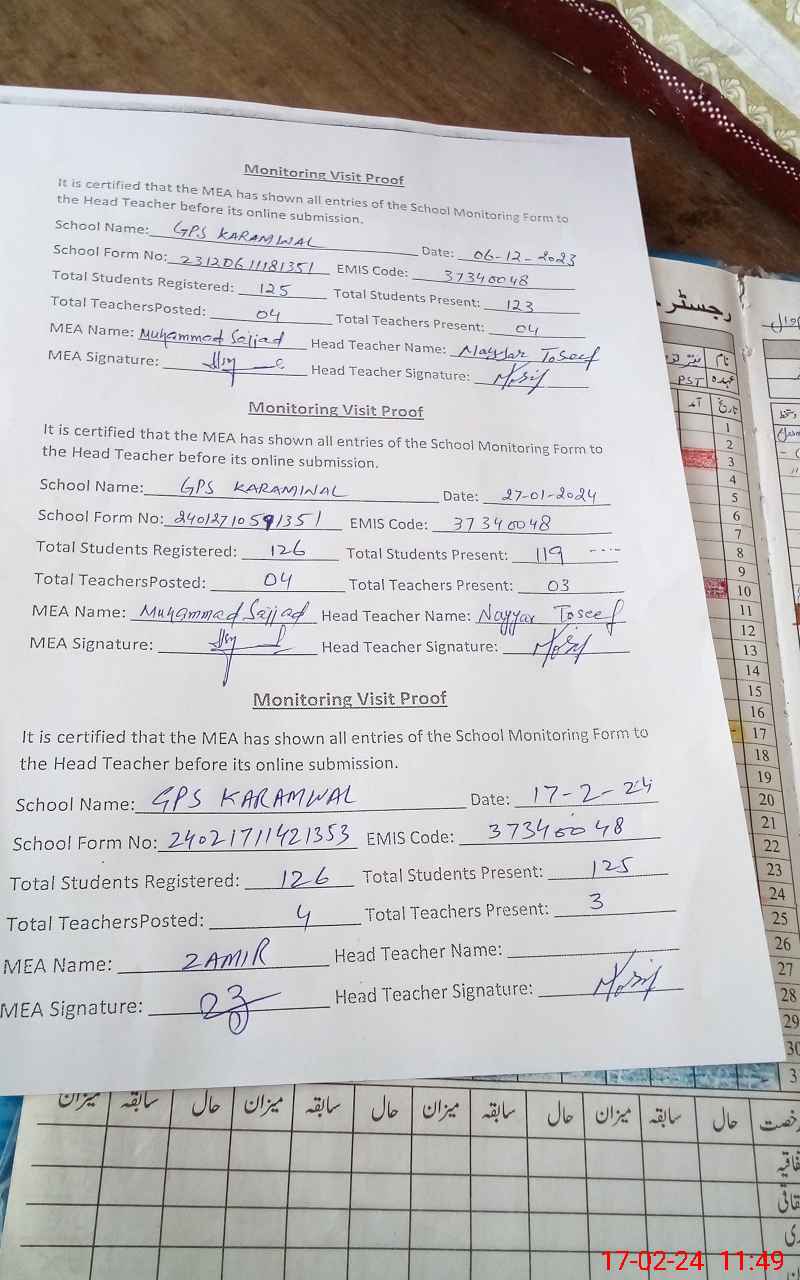 Monitoring Visit Proof
It is certified that the MEA has shown all entries of the School Monitoring Form to
the Head Teacher before its online submission.
School Name: GPS KARAMWAL Date: 06-12-2023
School Form No: 23120611181351 EMIS Code: 37340048
Total Students Registered: 125 Total Students Present: 123
Total TeachersPosted: 04 Total Teachers Present: 04
MEA Name: Muhammad Sajjad Head Teacher Name: Nayyar Toseef
MEA Signature: Head Teacher Signature:
Monitoring Visit Proof
It is certified that the MEA has shown all entries of the School Monitoring Form to
the Head Teacher before its online submission.
School Name: GPS KARAMWAL Date: 27-01-2024
School Form No: 24012710591351 EMIS Code: 37340048
Total Students Registered: 126 Total Students Present: 119
Total TeachersPosted: 04 Total Teachers Present: 03
MEA Name: Muhammad Sajjad Head Teacher Name: Nayyar Toseef
MEA Signature: Head Teacher Signature:
Monitoring Visit Proof
It is certified that the MEA has shown all entries of the School Monitoring Form to
the Head Teacher before its online submission.
School Name: GPS KARAMWAL Date: 17-2-24
School Form No: 24021711421353 EMIS Code: 37340048
Total Students Registered: 126 Total Students Present: 125
Total TeachersPosted: 4 Total Teachers Present: 3
MEA Name: ZAMIR Head Teacher Name:
MEA Signature: Head Teacher Signature:
رجسٹر
نام
عہدہ PST
تاریخ آمد
1
2
3
4
5
6
7
8
9
10
11
12
13
14
15
16
17
18
19
20
21
22
23
24
25
26
27
28
29
30
3
حال سابقہ میزان حال سابقہ میزان حال سابقہ میزان حال سابقہ میزان
17-02-24 11:49